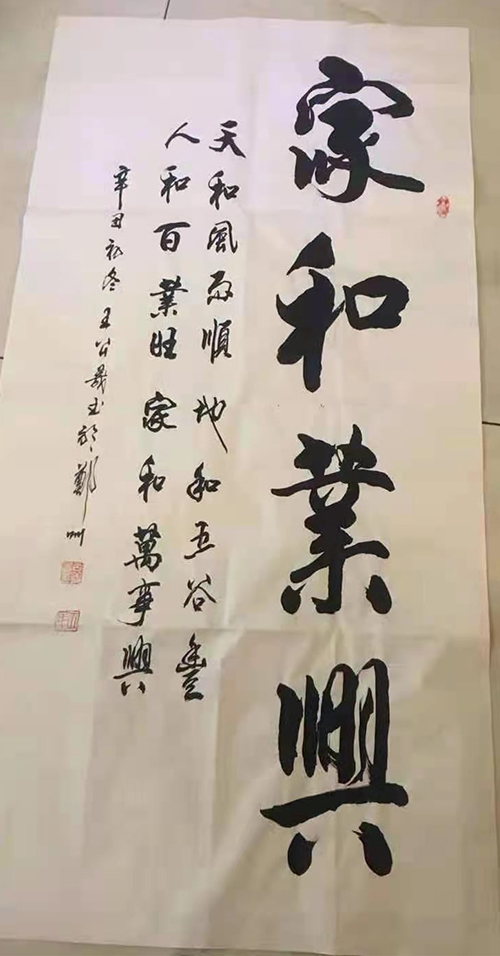 家和業興
天和風雨順地和五谷豊
人和百業旺家和萬事興
辛丑初冬王公晟書於鄭州